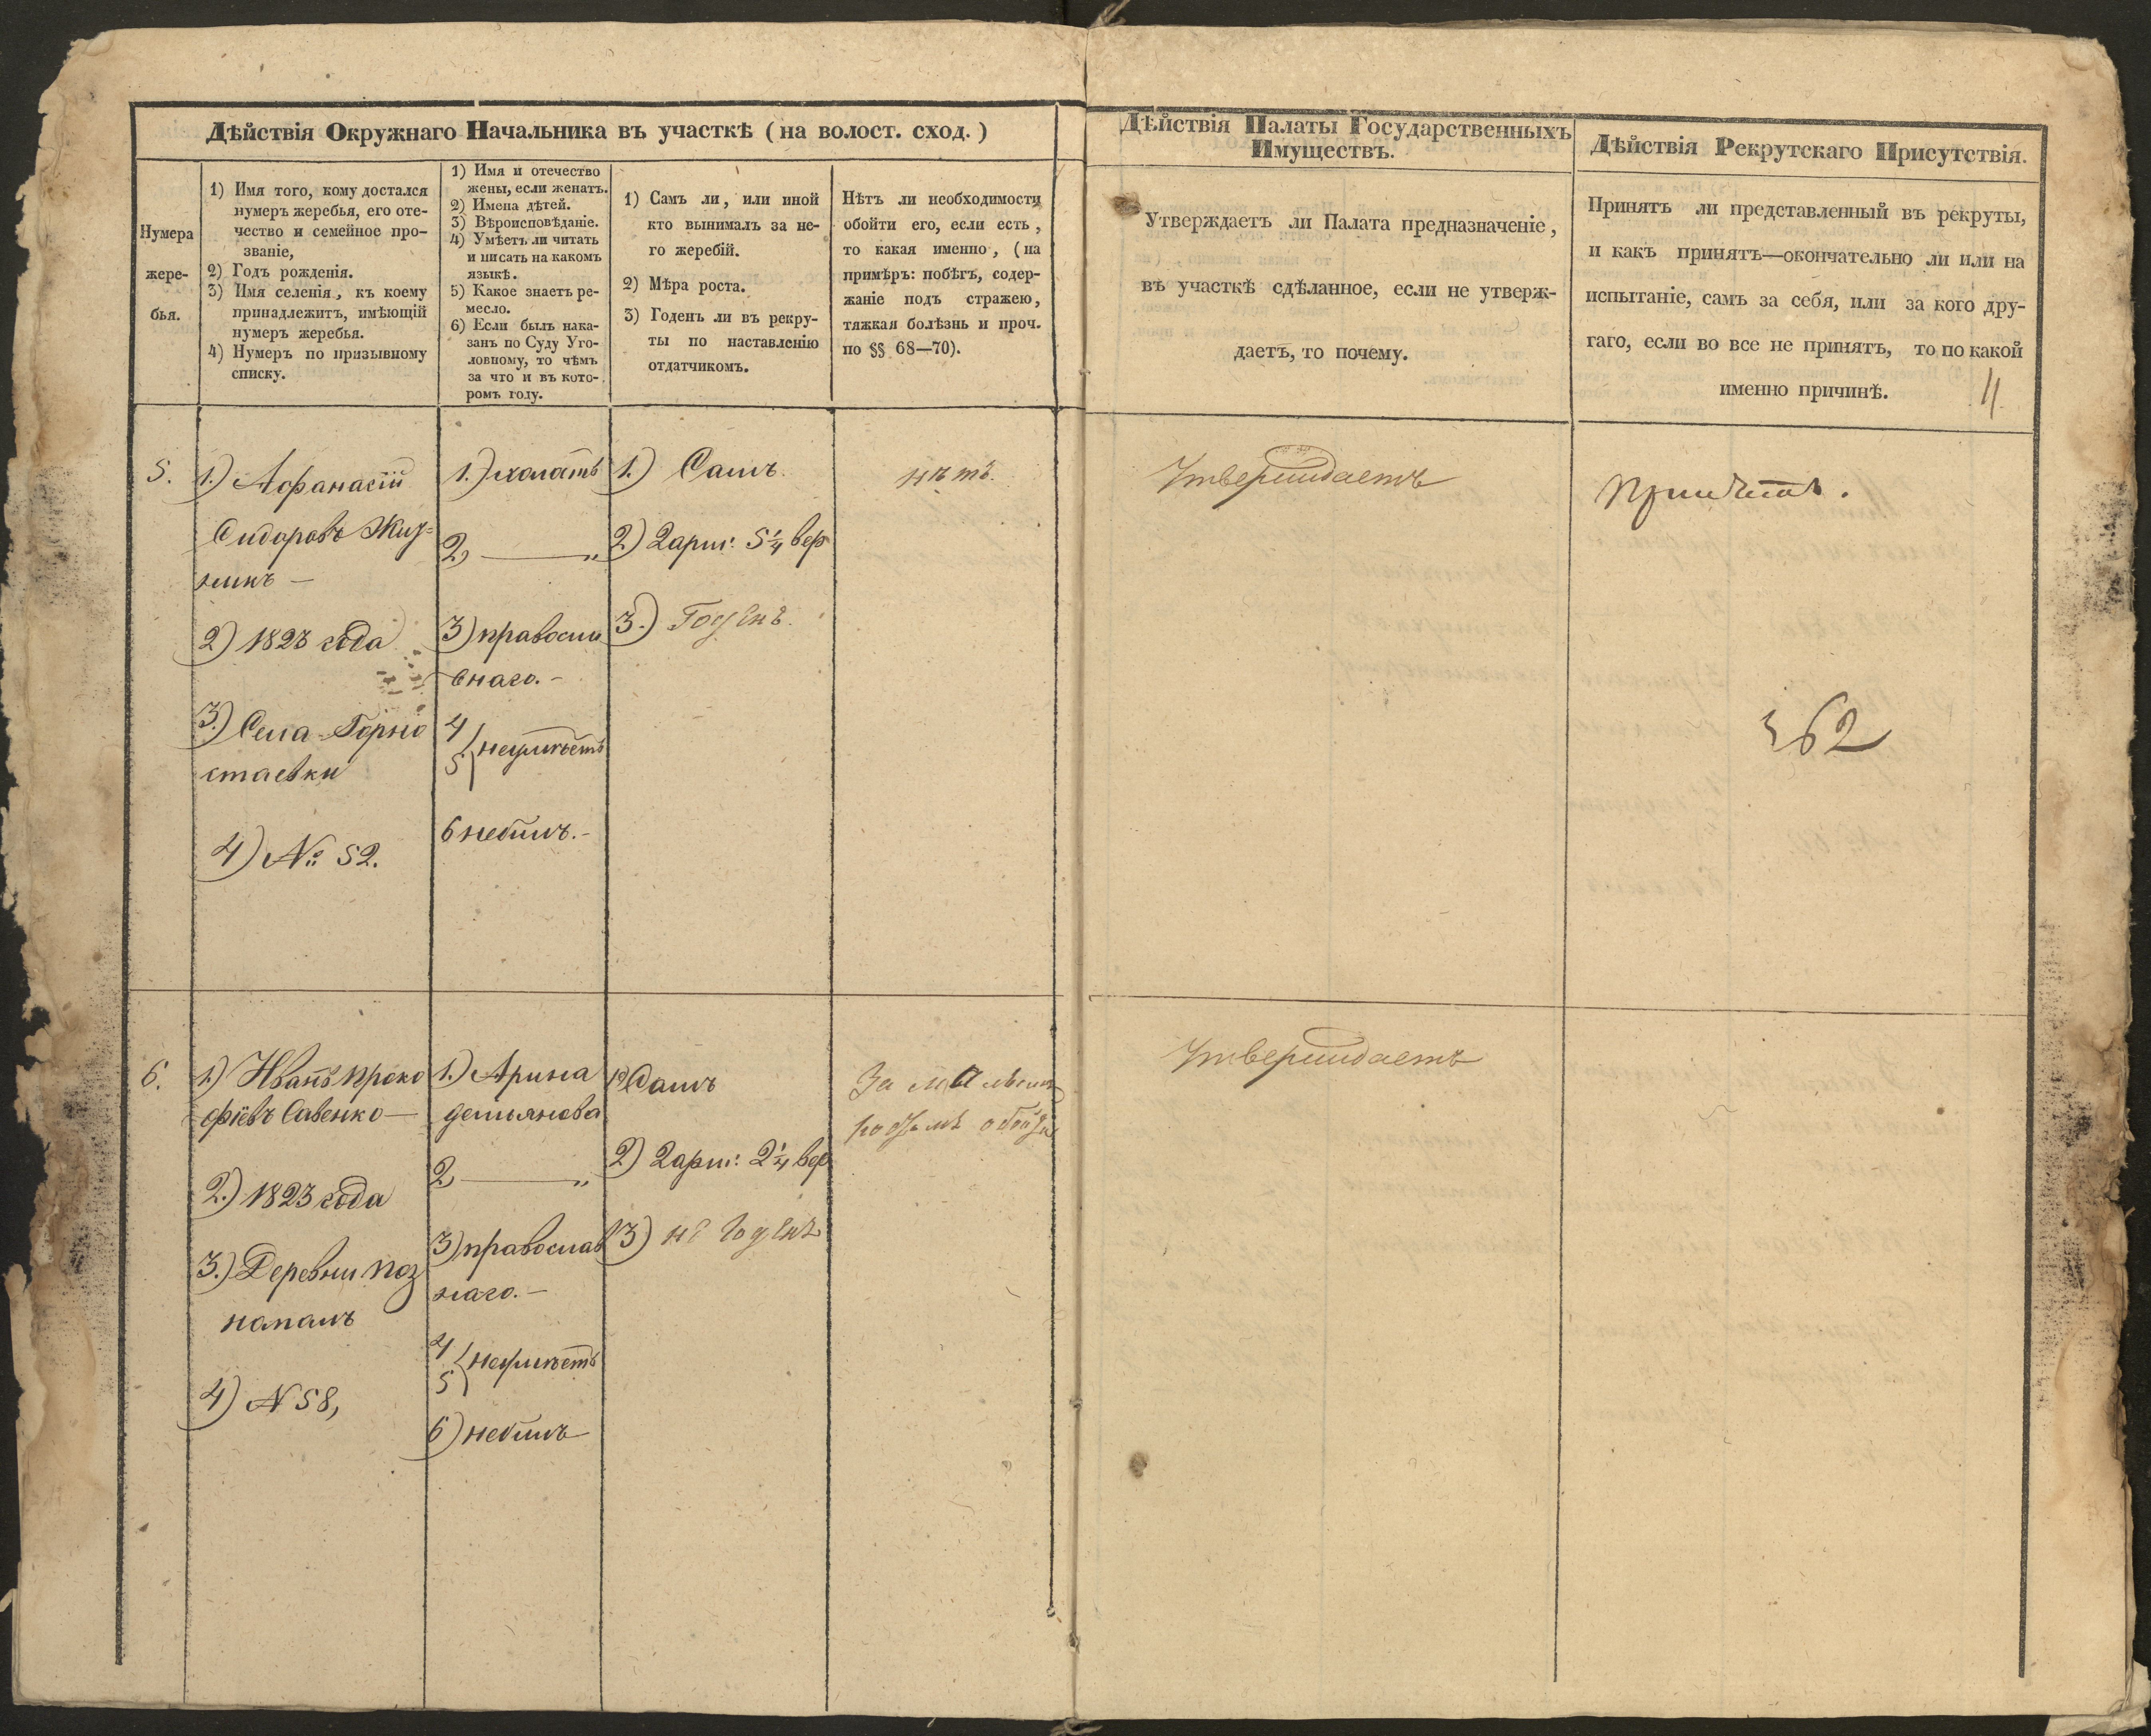 Дѣйствія Окружнаго Начальника въ участкѣ (на волост. сход.)
Нумера
жере-
бья.
1) Имя того, кому достался
нумеръ жеребья, его оте-
чество и семейное про-
званіе,
2) Годъ рожденія.
3) Имя селенія, къ коему
принадлежитъ, имѣющій
нумеръ жеребья.
4) Нумеръ по призывному
списку.
1) Имя и отечество
жены, если женатъ.
2) Имена дѣтей.
3) Вѣроисповѣданіе.
4) Умѣетъ ли читать
и писать на какомъ
языкѣ.
5) Какое знаетъ ре-
месло.
6) Если былъ нака-
занъ по Суду Уго-
ловному, то чѣмъ
за что и въ кото-
ромъ году.
1) Самъ ли, или иной
кто вынималъ за не-
го жеребій.
2) Мѣра роста.
3) Годенъ ли въ рекру-
ты по наставленію
отдатчикомъ.
Нѣтъ ли необходимости
обойти его, если есть,
то какая именно, (на
примѣръ: побѣгъ, содер-
жаніе подъ стражею,
тяжкая болѣзнь и проч.
по §§ 68—70).
Дѣйствія Палаты Государственныхъ
Имуществъ.
Утверждаетъ ли Палата предназначеніе,
въ участкѣ сдѣланное, если не утверж-
даетъ, то почему.
Дѣйствія Рекрутскаго Присутствія.
Принятъ ли представленный въ рекруты,
и какъ принятъ—окончательно ли или на
испытаніе, самъ за себя, или за кого дру-
гаго, если во все не принятъ, то по какой
именно причинѣ.
11.
5.
1.) Афанасій
Сидоровъ Жиз=
никъ —
2) 1823 года
3.) Села Горно
стаевки
4) № 52.
1.) холатъ
2) — „
3) православ
внаго. -
4
5 неумѣетъ
6 небылъ. -
1.) Самъ.
2) 2 арш: 5 1/4 вер
3.) Годенъ.
нѣтъ.
Утверждаетъ
Принятъ.
362
6.
1.) Иванъ Проко
фіевъ Савенко —
2.) 1823 года
3.) Деревни Поз
напалъ
4) N 58,
1.) Арина
демьянова
2) — „
3) православ
наго. —
4
5 неумѣетъ
6) небылъ
1) Самъ
2) 2 арш: 2 1/4 вер
3) не Годенъ
За малымъ
Утверждаетъ